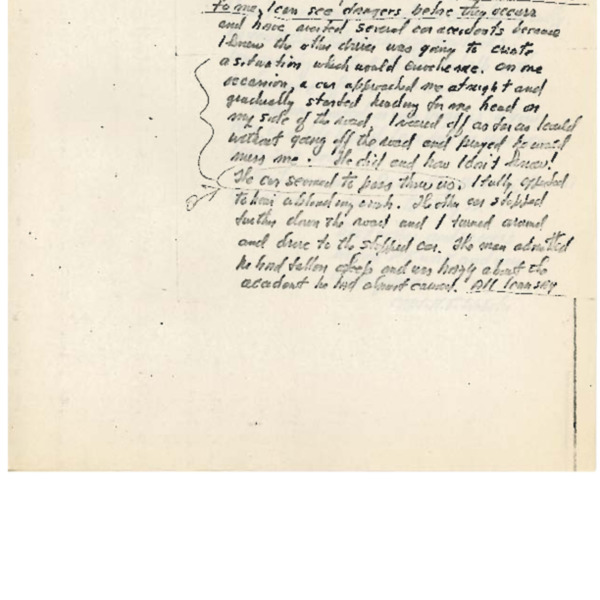 to me, I can see dangers before they occur
and have avoided several car accidents because
I knew the other driver was going to create
a situation which would involve me. On one
occasion, a car approached me at night and
gradually started heading for me head on
my side of the road. I veered off as far as I could
without going off the road and prayed he would
miss me. He did and how I don't know!
The car seemed to pass thru us. I fully expected
to hear a crash. The other car stopped
further down the road and I turned around
and drove to the stopped car. The man admitted
he had fallen asleep and was hazy about the
accident he had almost caused. All I can say